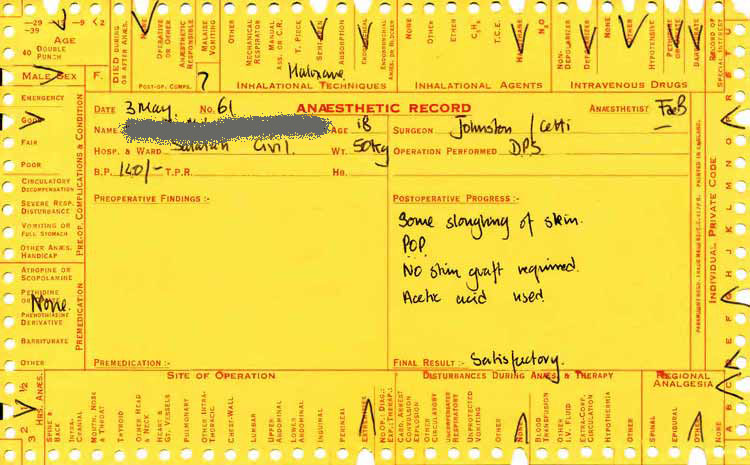 –29 –19 –9 < 2
–39
40 DOUBLE PUNCH
AGE
MALE SEX F.
DIED DURING OR AFTER ANÆS.
NONE
OPERATIVE OR OTHER
ANÆSTHETIC RESPONSIBLE
MALAISE VOMITING
OTHER
POST-OP. COMPS.
?
MECHANICAL RESPIRATOR
MANUAL ASS. OR C.R.
T. PIECE
ABSORPTION
ENDOBRONCHIAL OR BLOCKER
INHALATIONAL TECHNIQUES
NONE
OTHER
OTHER
ETHER
C₃H₆
T.C.E.
HALOTHANE
N₂O
INHALATIONAL AGENTS
NON-DEPOLARIZER
DEPOLARIZER
NONE
OTHER
HYPOTENSIVE
PETHIDINE
BARBITURATE
INTRAVENOUS DRUGS
RECORD OF SPECIAL INTEREST
EMERGENCY
GOOD
FAIR
POOR
CIRCULATORY DECOMPENSATION
SEVERE RESP. DISTURBANCE
VOMITING OR FULL STOMACH
OTHER ANÆS. HANDICAP
PRE-OP. COMPLICATIONS & CONDITION
ATROPINE OR SCOPOLAMINE
PETHIDINE
None
PHENOTHIAZINE DERIVATIVE
BARBITURATE
OTHER
PREMEDICATION
DATE 3 May No. 61 ANÆSTHETIC RECORD ANÆSTHETIST FaB
NAME AGE 18 SURGEON Johnston / Cetti
HOSP. & WARD Salalah Civil. WT. 50kg OPERATION PERFORMED DPS
B.P. 140/- T.P.R. HB.
PREOPERATIVE FINDINGS :-
POSTOPERATIVE PROGRESS :-
Some sloughing of skin.
POP
No skin graft required.
Acetic acid used
PREMEDICATION :-
FINAL RESULT :- Satisfactory.
INDIVIDUAL PRIVATE CODE
SITE OF OPERATION
DISTURBANCES DURING ANÆS. & THERAPY
REGIONAL ANALGESIA
3 2 1 ½
HRS. ANÆS.
SPINE & BACK
INTRA-CRANIAL
MOUTH, NOSE & THROAT
THYROID
OTHER HEAD & NECK
HEART & GT. VESSELS
PULMONARY
OTHER INTRA-THORACIC
CHEST-WALL
LUMBAR
UPPER ABDOMINAL
LOWER ABDOMINAL
INGUINAL
PERINEAL
EXTREMITIES
CARD. ARREST
CONVULSION
EXPLOSION
OTHER CIRCULATORY
UNEXPECTED RESPIRATORY
UNPROTECTED VOMITING
OTHER
NONE
BLOOD TRANSFUSION
OTHER I.V. FLUID
EXTRA-CORP. CIRCULATION
HYPOTHERMIA
OTHER
SPINAL
EPIDURAL
OTHER